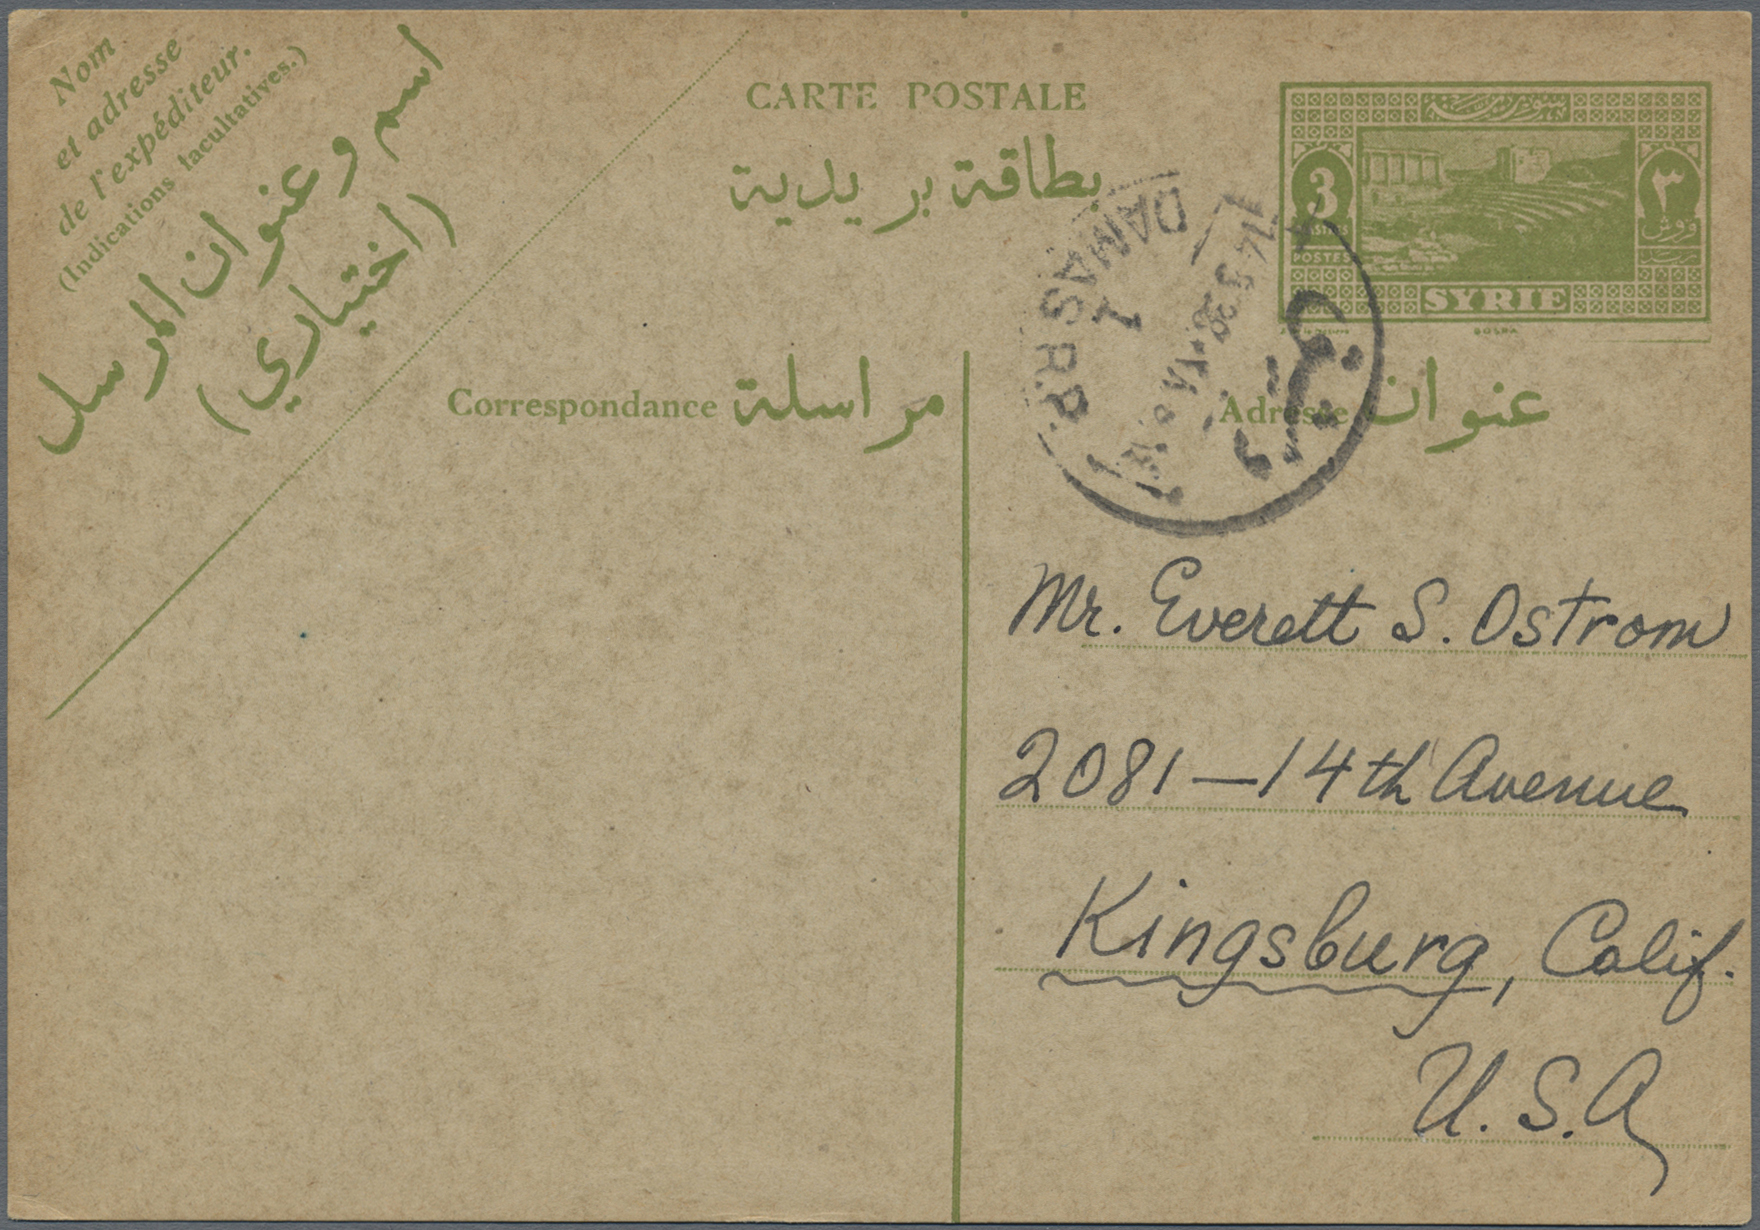 Nom
et adresse
de l'expéditeur.
(Indications facultatives.)
اسم وعنوان المرسل
(اختياري)
CARTE POSTALE
بطاقة بريدية
سورية
3
٣
قروش
POSTES
SYRIE
DAMAS R.P.
1
دمشق
Correspondance مراسلة
Adresse عنوان
Mr. Everett S. Ostrom
2081 — 14th Avenue
Kingsburg, Calif.
U.S.A